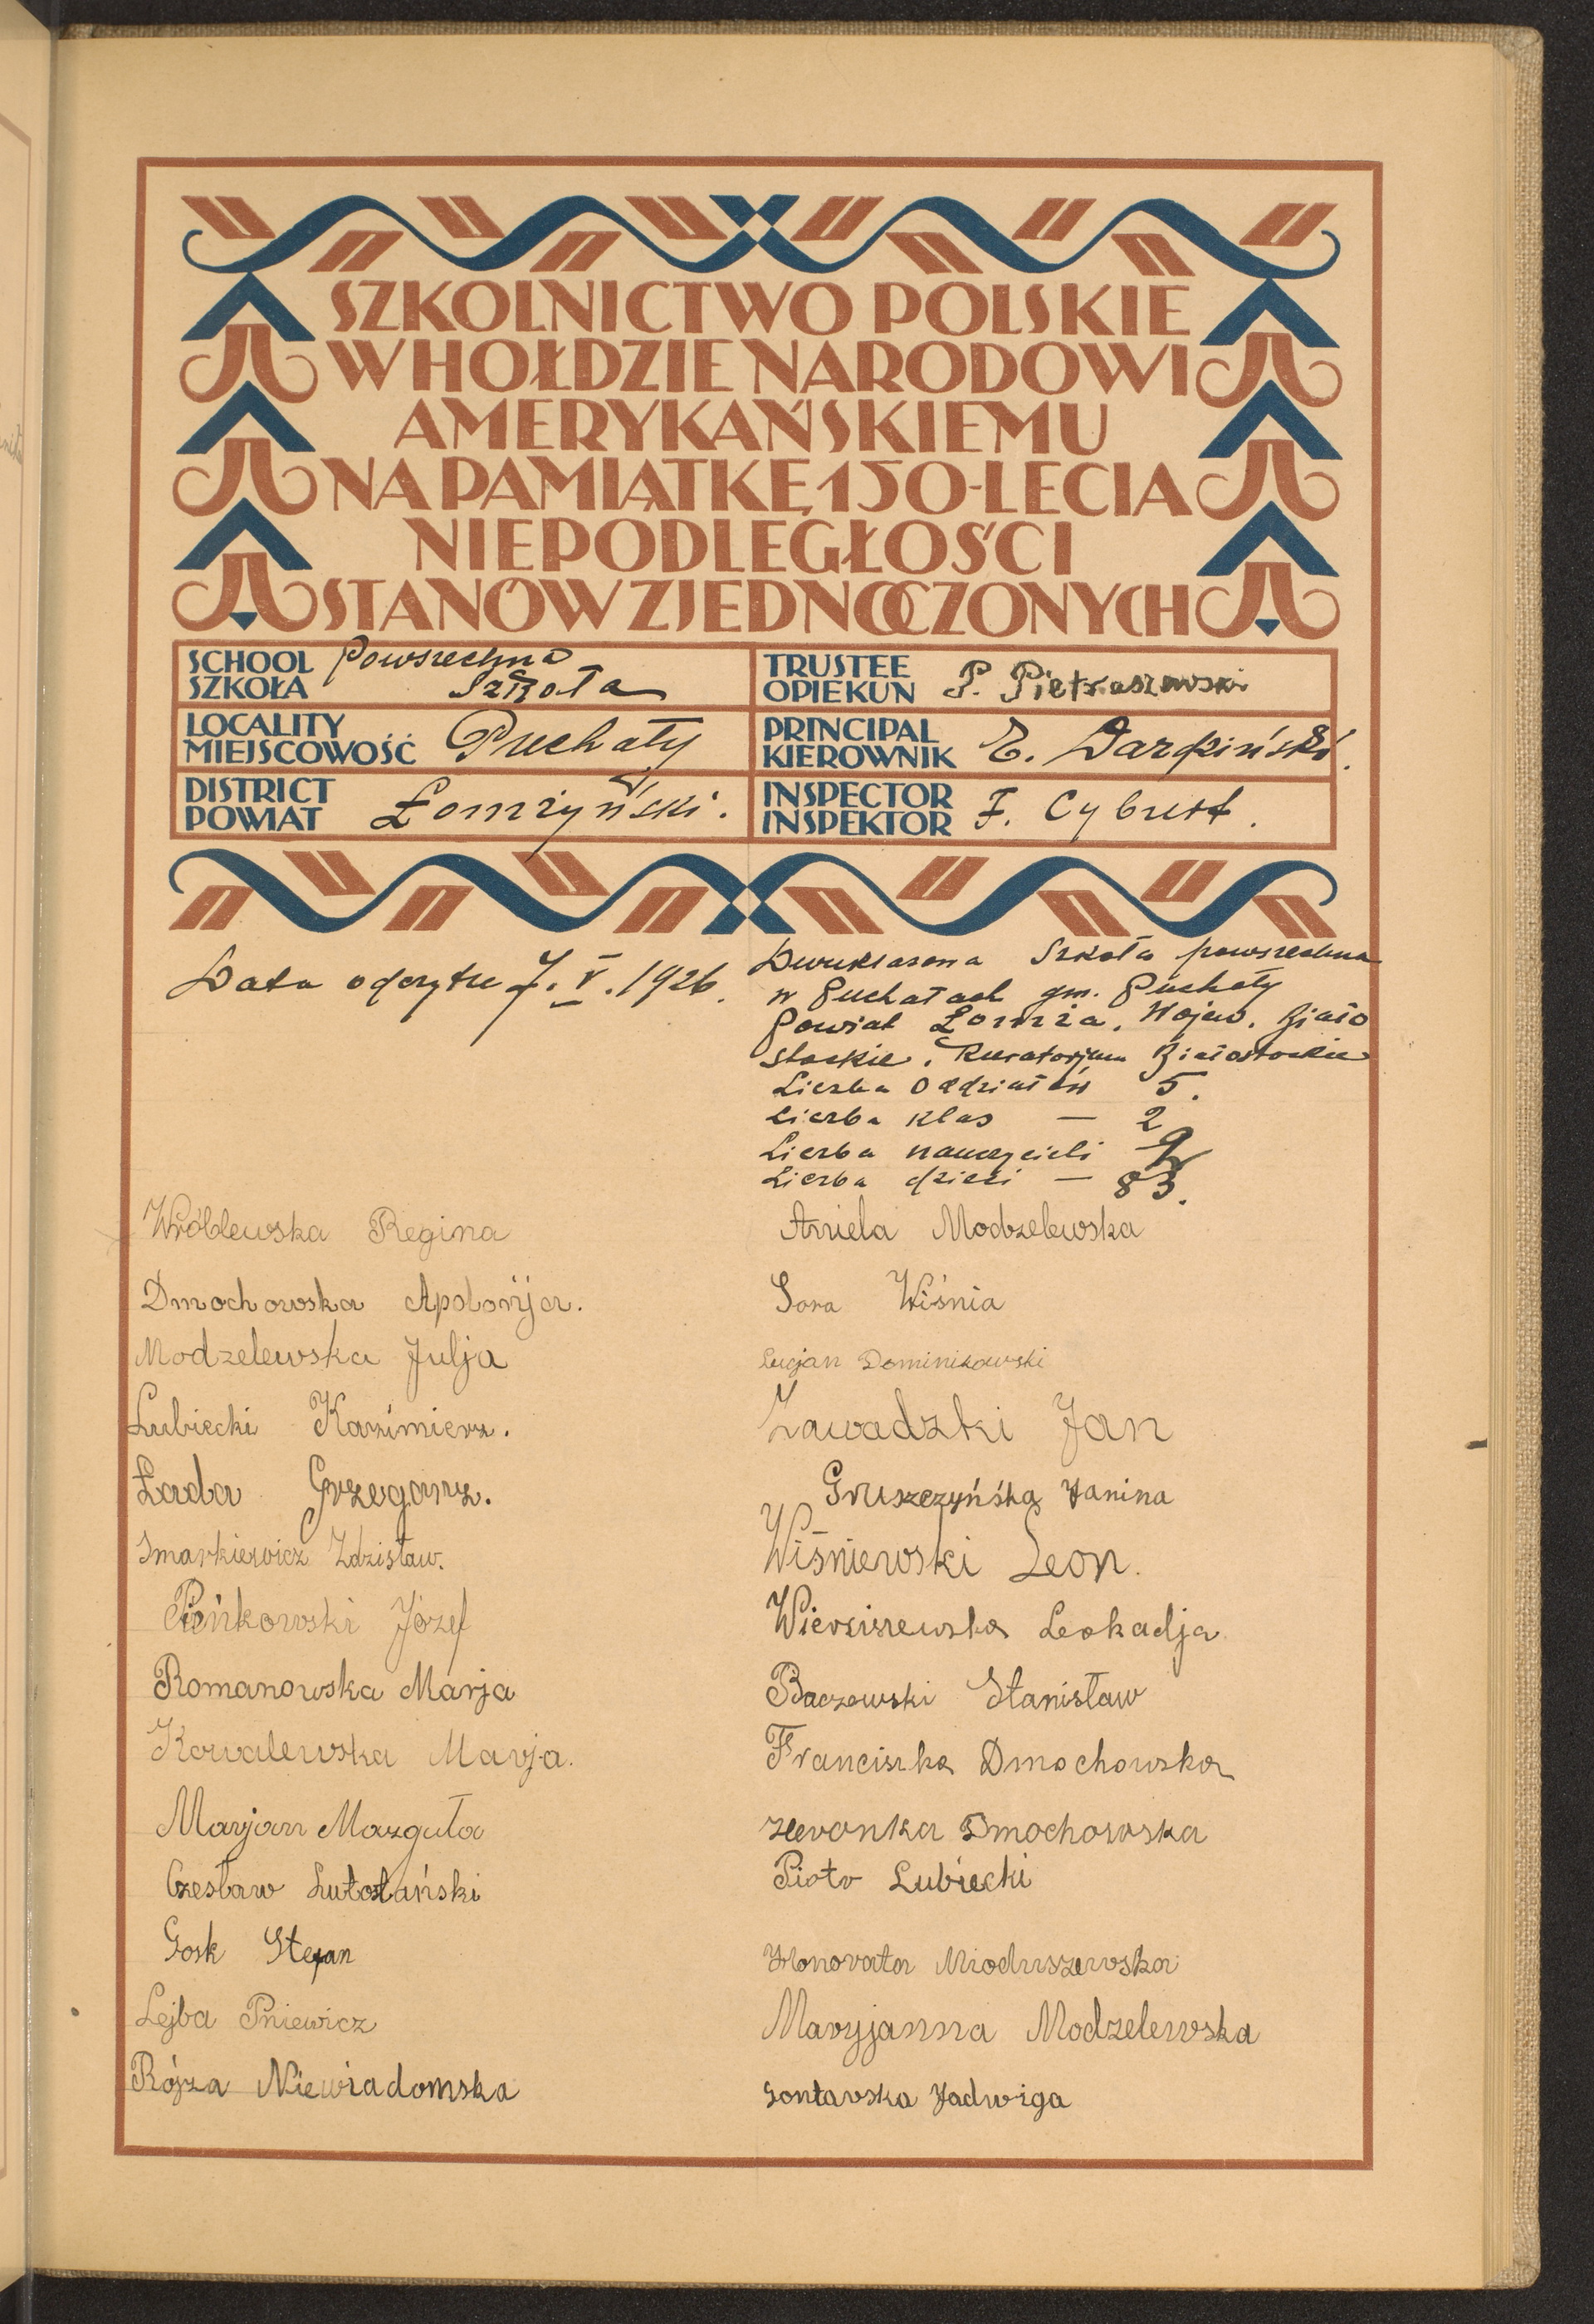 SZKOLNICTWO POLSKIE
W HOŁDZIE NARODOWI
AMERYKAŃSKIEMU
NA PAMIĄTKĘ 150-LECIA
NIEPODLEGŁOŚCI
STANÓW ZJEDNOCZONYCH
SCHOOL
SZKOŁA
Powszechna
Szkoła
TRUSTEE
OPIEKUN
P. Pietraszewski
LOCALITY
MIEJSCOWOŚĆ
Puchały
PRINCIPAL
KIEROWNIK
E.
DISTRICT
POWIAT
Łomżyński.
INSPECTOR
INSPEKTOR
F.
Data odczytu 7.V.1926.
Dwuklasowa Szkoła powszechna
w Puchałach gm. Puchały
Powiat Łomża. Wojew. Biało
stockie. Kuratorjum Białostockie
Liczba oddziałów 5.
Liczba klas — 2
Liczba nauczycieli 2
Liczba dzieci — 83.
Wróblewska Regina
Dmochowska Apolonja.
Modzelewska Julja
Lubiecki Kazimierz.
Łada Grzegorz.
Smarkiewicz Zdzisław.
Pieńkowski Józef
Romanowska Marja
Kowalewska Marja.
Marjan Mazguła
Czesław Lutostański
Gosk Stefan
Lejba Pniewicz
Rójza Niewiadomska
Aniela Modzelewska
Sora Wiśnia
Lucjan Dominikowski
Zawadzki Jan
Gruszczyńska Janina
Wiśniewski Leon.
Wierziszewska Leokadja
Baczewski Stanisław
Franciszka Dmochowska
Dmochowska
Piotr Lubiecki
Honorata Mioduszewska
Maryjanna Modzelewska
Gontarska Jadwiga